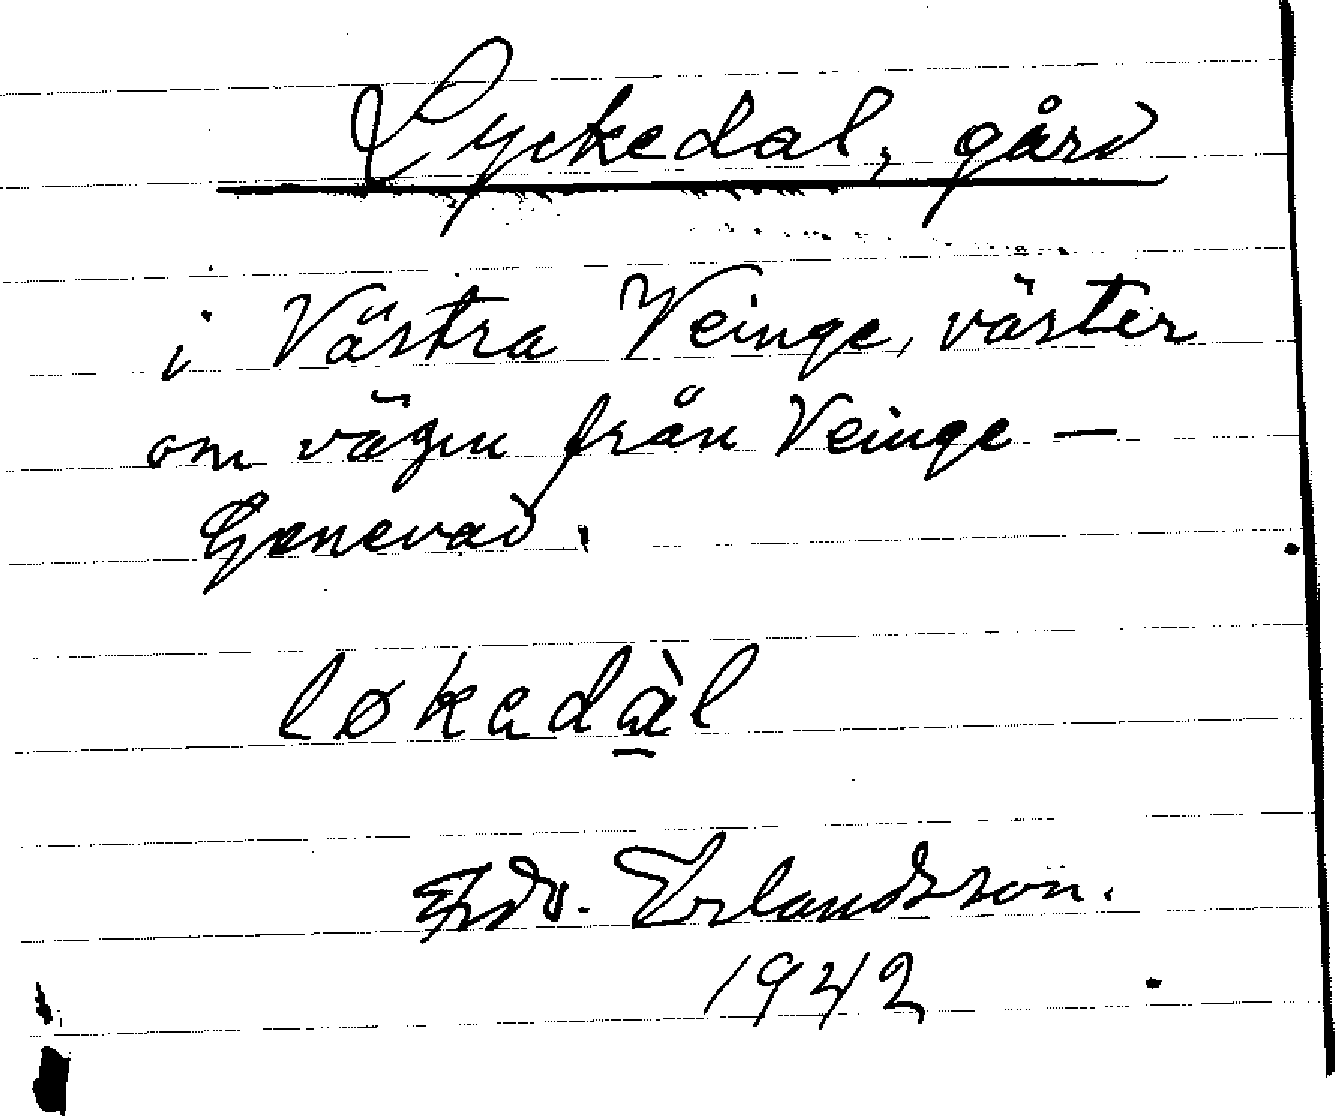 Lyckedal, gård
i Västra Veinge, väster
om vägen från Veinge –
Genevad.
løkədàl
Edv. Erlandsson.
1942